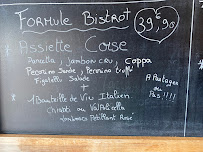 Formule Bistrot
39€,90
Assiette Corse
Pancetta, Jambon cru, Coppa
Pecorino Sarde, Pecorino truffe
Figatelli Salade
A Partager
ou
Pas !!!!
+
1 Bouteille de Vin Italien
Chianti ou Valpolicella
Lambrusco Petillant Rosé